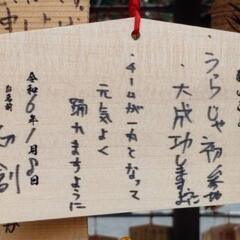 ・うらじゃ初参加
・大成功しますように
・チームが一丸となって
元気よく
踊れますように
令和6年1月8日
お名前